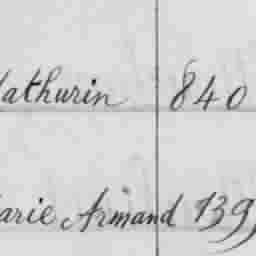 Mathurin 840
Marie Armand 139